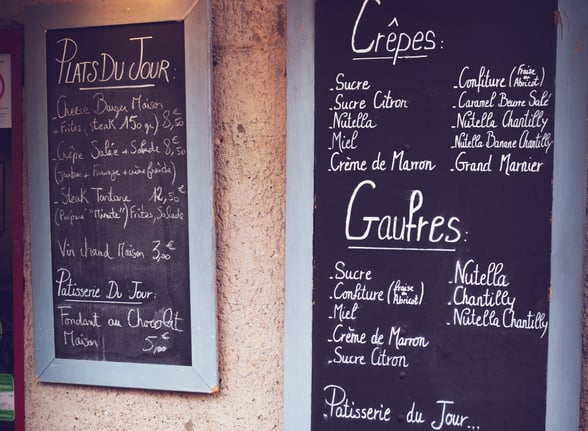 Plats Du Jour:
Cheese Burger Maison
_Frites (steak 150 gr) 8,50€
_Crêpe Salée + Salade 8,50€
(Jambon + Fromage + crème fraîche)
_Steak Tartare 12,50€
(Préparé "Minute") Frites, Salade
Vin chaud Maison 3,00€
Patisserie Du Jour:
Fondant au Chocolat
Maison 5,00€
Crêpes:
_Sucre
_Sucre Citron
_Nutella
_Miel
_Crème de Marron
_Confiture (Fraise ou Abricot)
_Caramel Beurre Salé
_Nutella Chantilly
_Nutella Banane Chantilly
_Grand Marnier
Gaufres:
_Sucre
_Confiture (Fraise ou Abricot)
_Miel
_Crème de Marron
_Sucre Citron
_Nutella
_Chantilly
_Nutella Chantilly
_Patisserie du Jour...